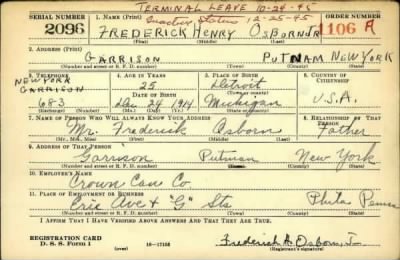 TERMINAL LEAVE 10-24-45
SERIAL NUMBER 1. NAME (Print) Inactive Status 12-25-45 ORDER NUMBER
2096 FREDERICK HENRY OSBORN JR 1106 A
(First) (Middle) (Last)
2. ADDRESS (Print)
GARRISON PUTNAM NEW YORK
(Number and street or R. F. D. number) (Town) (County) (State)
3. TELEPHONE 4. AGE IN YEARS 5. PLACE OF BIRTH 6. COUNTRY OF CITIZENSHIP
NEW YORK
GARRISON 25 Detroit
DATE OF BIRTH
683 Dec 24 1914 Michigan U.S.A.
(Mo.) (Day) (Yr.) (State or country)
7. NAME OF PERSON WHO WILL ALWAYS KNOW YOUR ADDRESS 8. RELATIONSHIP OF THAT PERSON
Mr. Frederick Osborn Father
(Mr., Mrs., Miss) (First) (Middle) (Last)
9. ADDRESS OF THAT PERSON
Garrison Putnam New York
(Number and street or R. F. D. number) (Town) (County) (State)
10. EMPLOYER'S NAME
Crown Can Co
11. PLACE OF EMPLOYMENT OR BUSINESS
Erie Ave & "G" Sts Phila Penna
(Number and street or R. F. D. number) (Town) (County) (State)
I AFFIRM THAT I HAVE VERIFIED ABOVE ANSWERS AND THAT THEY ARE TRUE.
REGISTRATION CARD
D. S. S. Form 1 (over) 16-17105 Frederick H. Osborn, Jr.
(Registrant's signature)